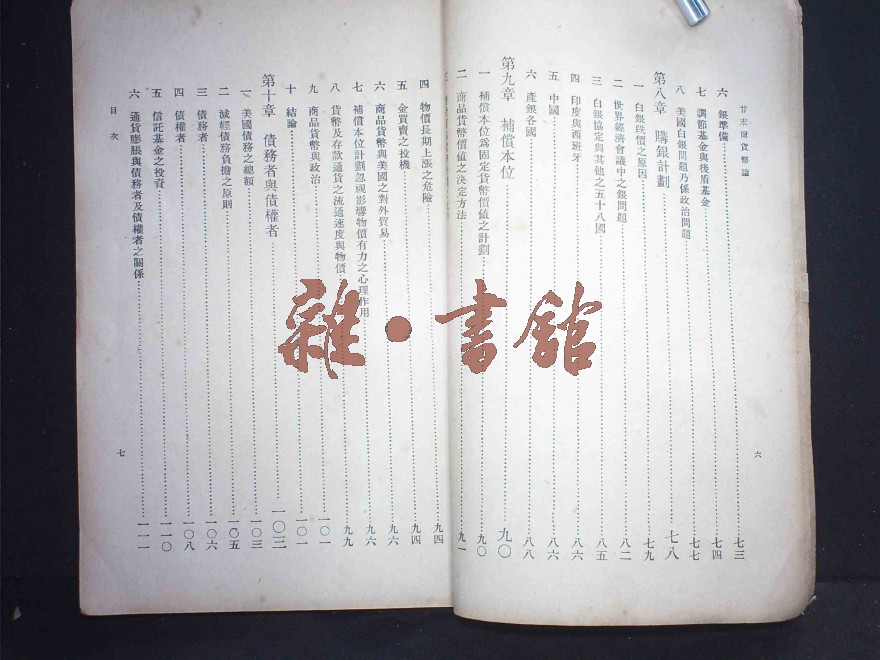 甘末爾貨幣論
六 銀準備 七三
七 調節基金與後盾基金 七四
八 美國白銀問題乃係政治問題 七七
第八章 購銀計劃 七八
一 白銀跌價之原因 七九
二 世界經濟會議中之銀問題 八二
三 白銀協定與其他之五十八國 八五
四 印度與西班牙 八六
五 中國 八六
六 產銀各國 八八
第九章 補償本位 九〇
一 補償本位爲固定貨幣價值之計劃 九〇
二 商品貨幣價值之決定方法 九一
六
四 物價長期上漲之危險 九四
五 金買賣之投機 九四
六 商品貨幣與美國之對外貿易 九六
七 補償本位計劃忽視影響物價有力之心理作用 九六
八 貨幣及存款通貨之流通速度與物價 九九
九 商品貨幣與政治 一〇一
十 結論 一〇一
第十章 債務者與債權者 一〇三
一 美國債務之總額 一〇三
二 減輕債務負擔之原則 一〇五
三 債務者 一〇六
四 債權者 一〇八
五 信託基金之投資 一一〇
六 通貨膨脹與債務者及債權者之關係 一一一
目次
七
雜·書館